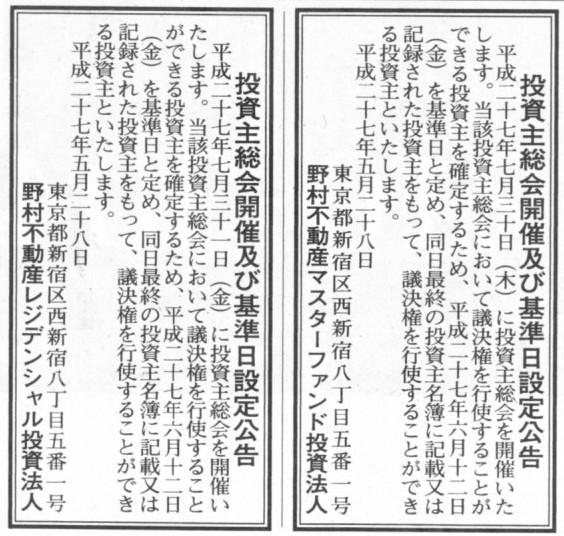 投資主総会開催及び基準日設定公告
平成二十七年七月三十日（木）に投資主総会を開催いた
します。当該投資主総会において議決権を行使することが
できる投資主を確定するため、平成二十七年六月十二日
（金）を基準日と定め、同日最終の投資主名簿に記載又は
記録された投資主をもって、議決権を行使することができ
る投資主といたします。
平成二十七年五月二十八日
東京都新宿区西新宿八丁目五番一号
野村不動産マスターファンド投資法人
投資主総会開催及び基準日設定公告
平成二十七年七月三十一日（金）に投資主総会を開催い
たします。当該投資主総会において議決権を行使すること
ができる投資主を確定するため、平成二十七年六月十二日
（金）を基準日と定め、同日最終の投資主名簿に記載又は
記録された投資主をもって、議決権を行使することができ
る投資主といたします。
平成二十七年五月二十八日
東京都新宿区西新宿八丁目五番一号
野村不動産レジデンシャル投資法人